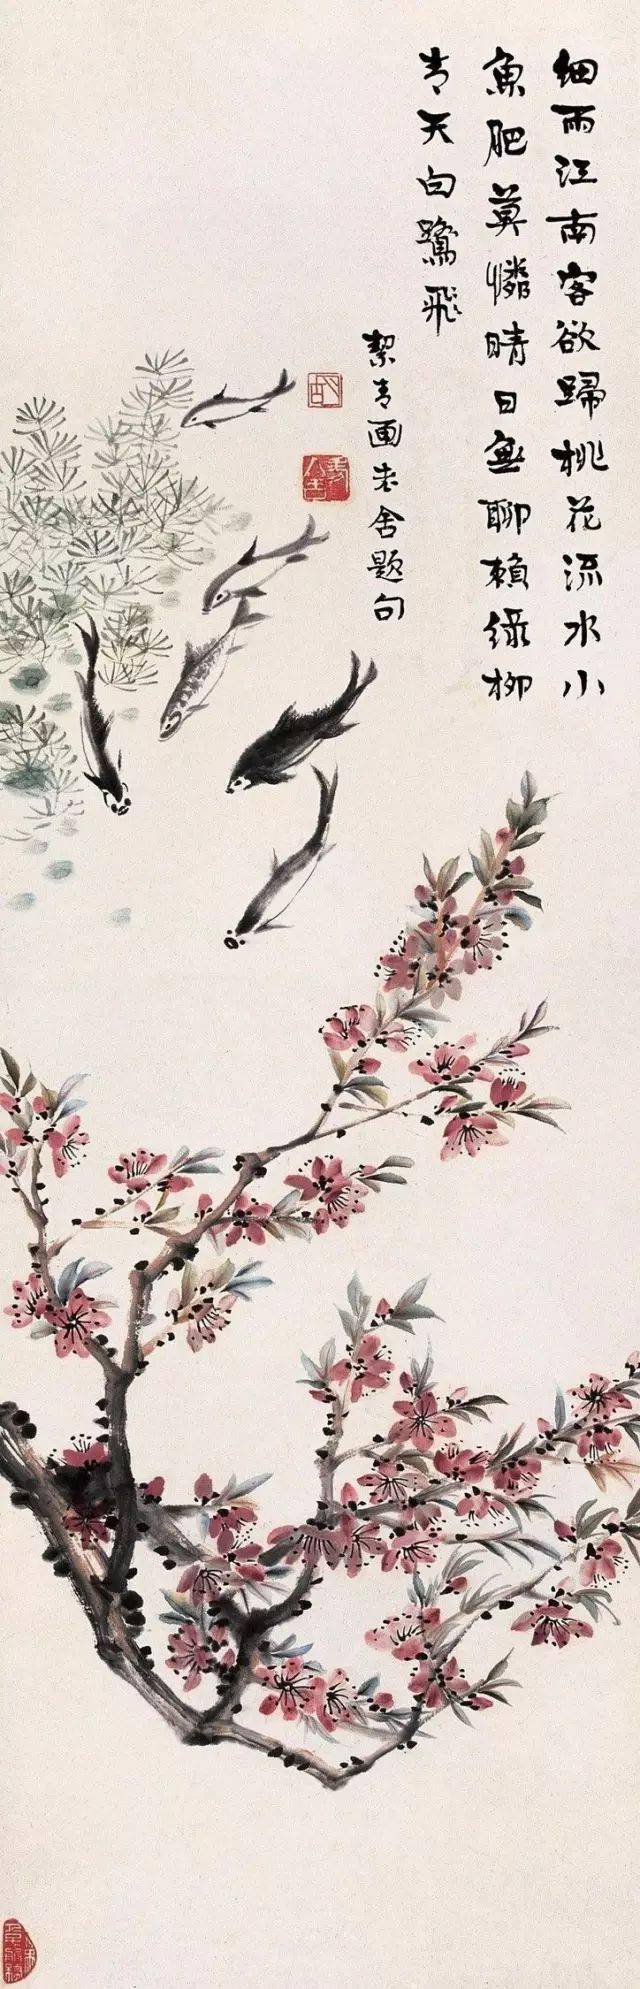 细雨江南客欲歸桃花流水小
魚肥莫憐晴日無聊賴绿柳
青天白鷺飛
絜青画老舍题句